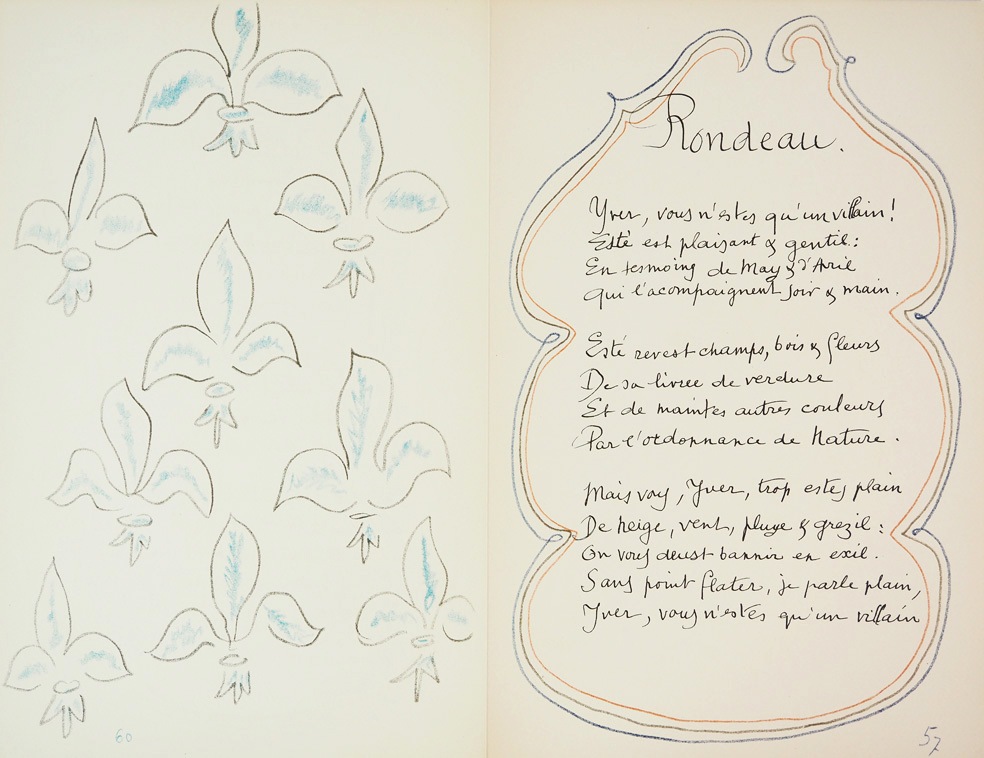 60
Rondeau.
Yver, vous n'estes qu'un villain!
Esté est plaisant & gentil:
En tesmoing de May & d'Avril
Qui l'acompaignent soir & main.
Esté revest champs, bois & fleurs
De sa livree de verdure
Et de maintes autres couleurs
Par l'ordonnance de Nature.
Mais voy, Yver, trop estes plain
De neige, vent, pluye & grezil:
On vous deust bannir en exil.
Sans point flater, je parle plain,
Yver, vous n'estes qu'un villain
57